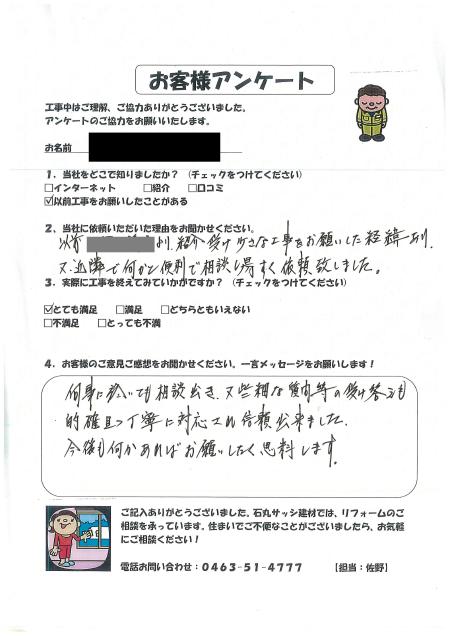 お客様アンケート
工事中はご理解、ご協力ありがとうございました。
アンケートのご協力をお願いいたします。
お名前
1．当社をどこで知りましたか？（チェックをつけてください）
□インターネット □紹介 □口コミ
☑以前工事をお願いしたことがある
2、当社に依頼いただいた理由をお聞かせください。
以前 より、紹介受け 少さな工事をお願いした経緯有り、
又、近隣で何かと便利で相談し易すく依頼致しました。
3．実際に工事を終えてみていかがですか？（チェックをつけてください）
☑とても満足 □満足 □どちらともいえない
□不満足 □とっても不満
4．お客様のご意見ご感想をお聞かせください。一言メッセージをお願いします！
何事に於いても相談出き、又些細な質問等の受け答えも
的確且つ丁寧に対応され信頼出来ました。
今後も何かあればお願いしたく思料します。
ご記入ありがとうございました。石丸サッシ建材では、リフォームのご
相談を承っています。住まいでご不便なことがございましたら、お気軽
にご相談ください！
電話お問い合わせ：0463-51-4777 【担当：佐野】